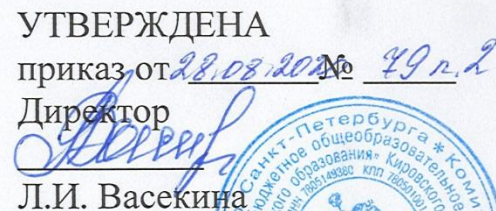 УТВЕРЖДЕНА
приказ от 28.08.202 № 79 п.2
Директор
Л.И. Васекина
Санкт-Петербурга * Коми
бюджетное общеобразовательное
образования" Кировского
ИНН 7805149380 КПП 78050100